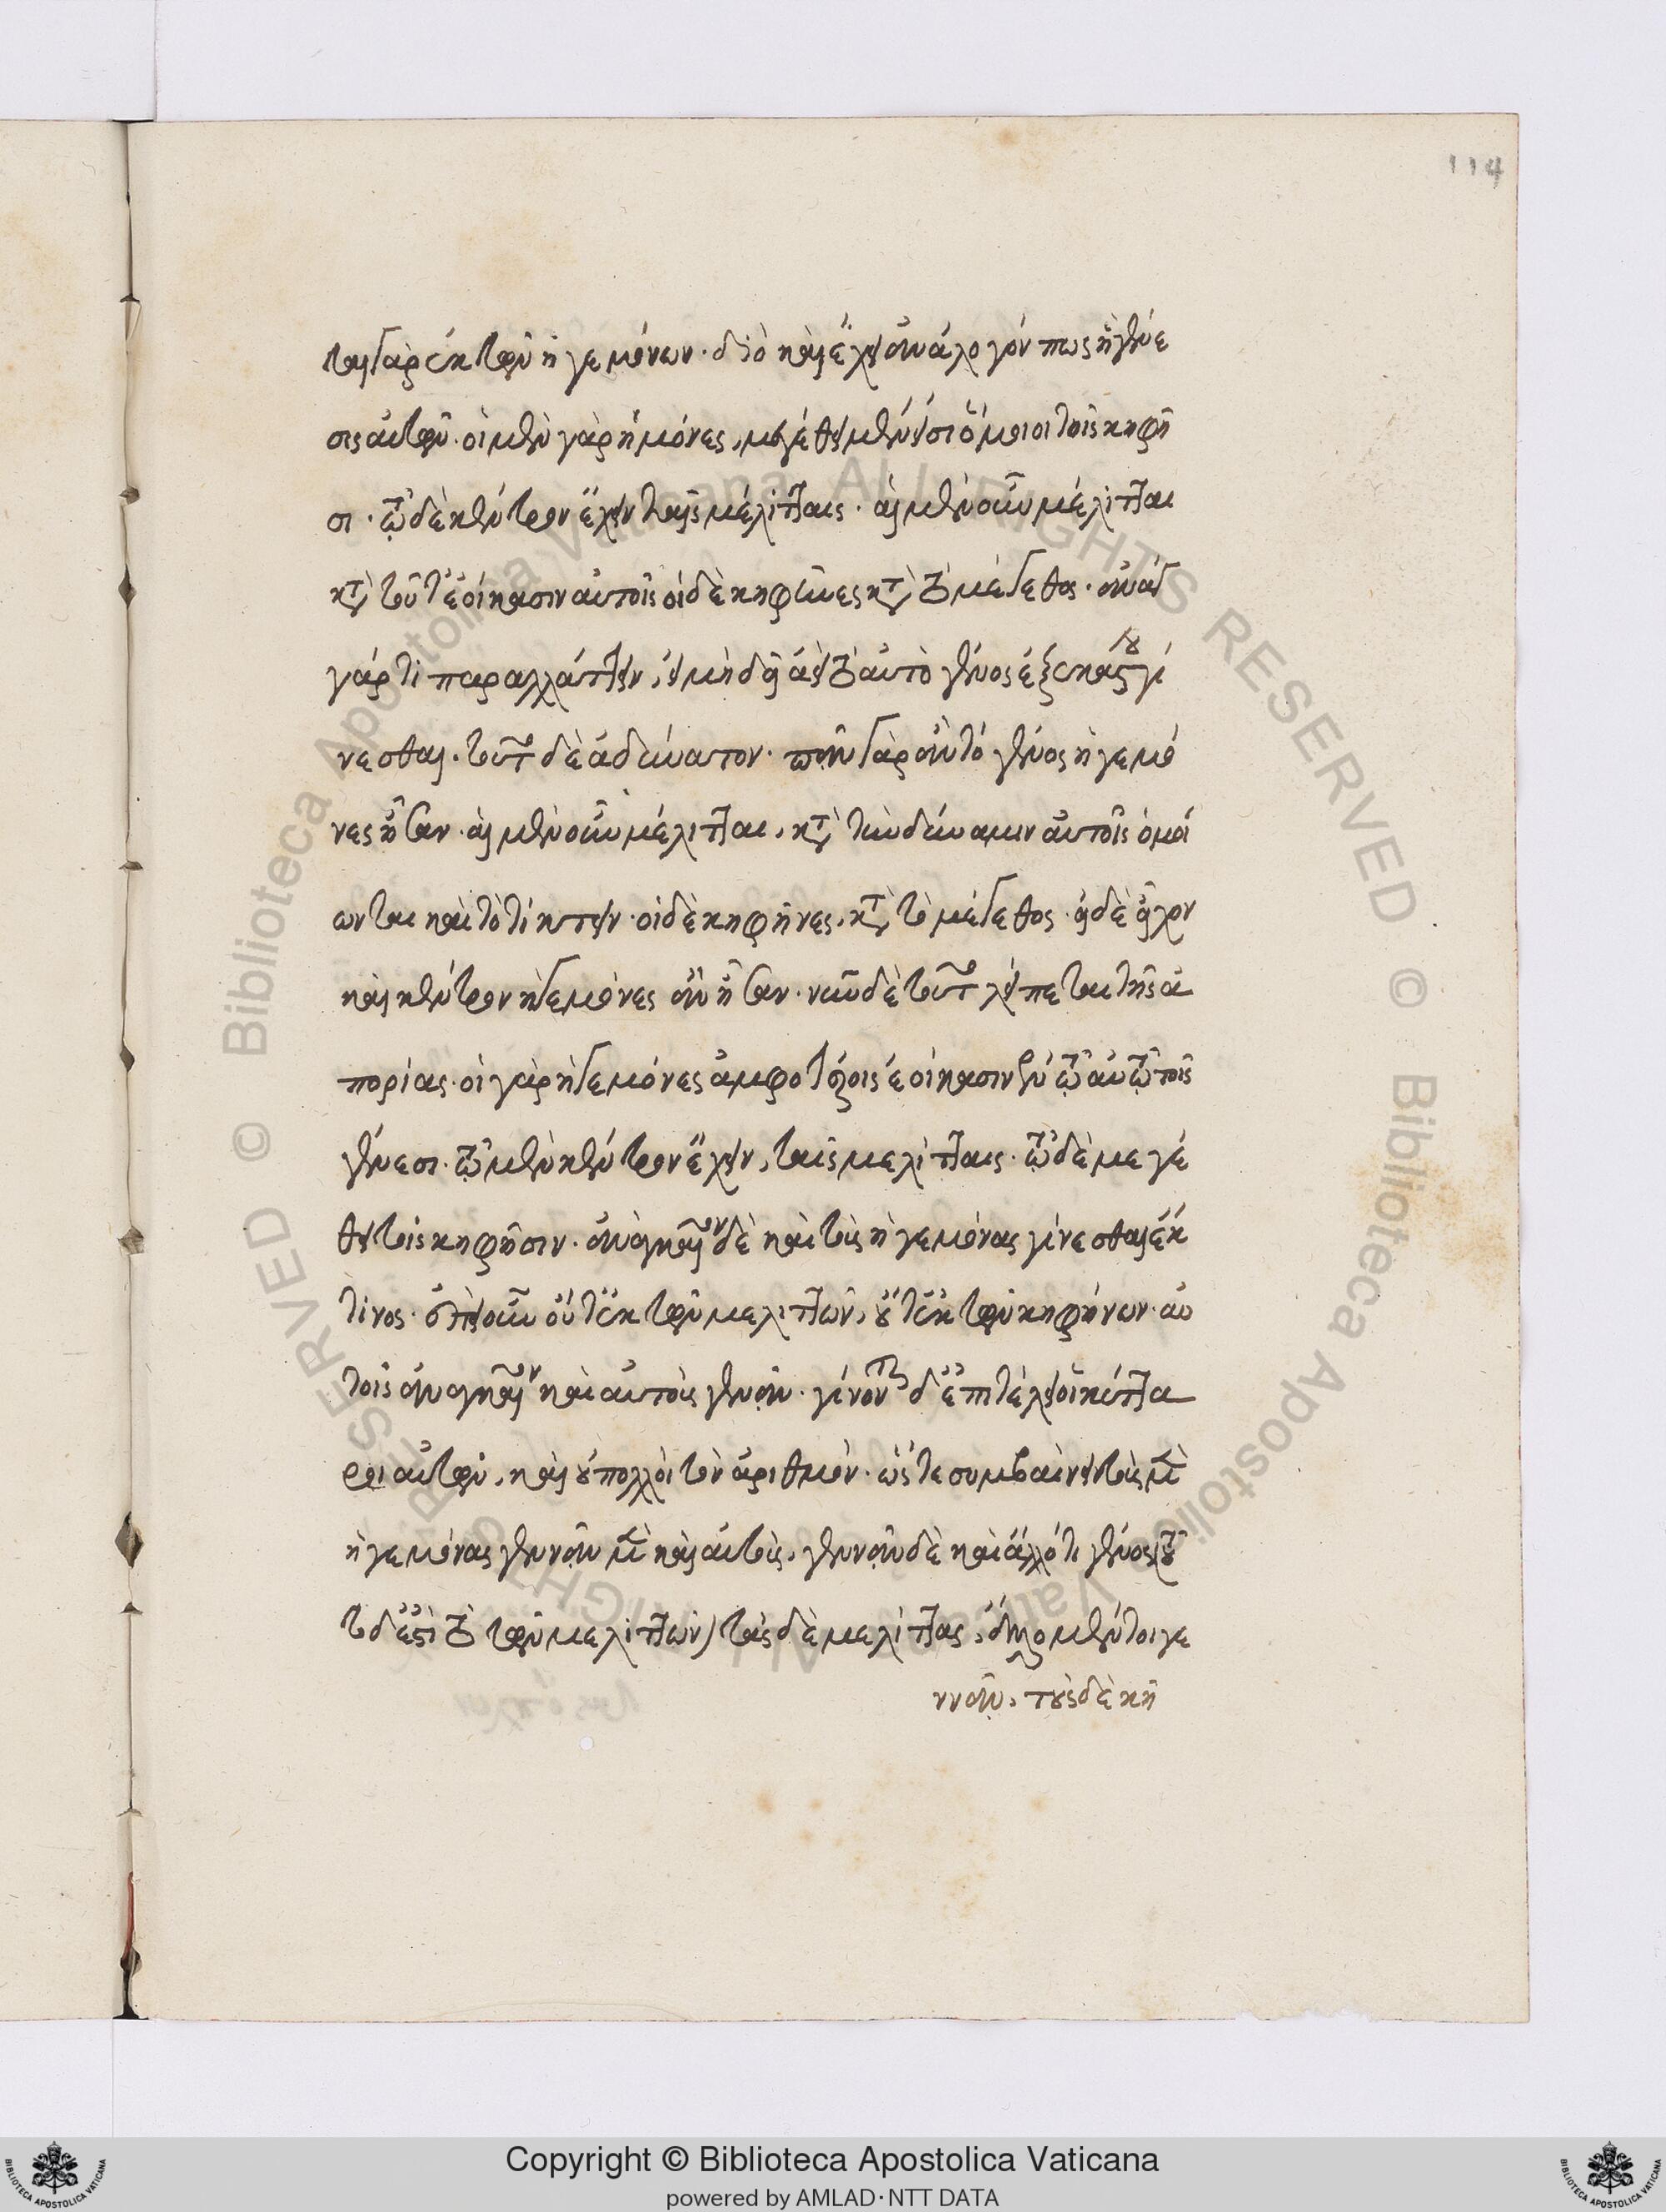 114
ται γὰρ ἐκ τῶν ἡγεμόνων· διὸ καὶ ἔχει ἀνάλογόν πως ἡ γένε
σις αὐτῶν· οἱ μὲν γὰρ ἡμόνες, μεγέθει μέν εἰσι ὅμοιοι τοῖς κηφῆ
σι· τῷ δὲ κέντρον ἔχειν ταῖς μελίτταις· αἱ μὲν οὖν μέλιτται
κατὰ τοῦτ' ἐοίκασιν αὐτοῖς οἱ δὲ κηφῆνες κατὰ τὸ μέγεθος· ἀνάγ
γάρ τι παραλλάττειν, εἰ μὴ δεῖ ἀεὶ τὸ αὐτὸ γένος ἐξ ἑκάστου γί
νεσθαι· τοῦτο δὲ ἀδύνατον· πᾶν γὰρ ἂν τό γένος ἡγεμό
νες ἦσαν· αἱ μὲν οὖν μέλιτται, κατὰ τὴν δύναμιν αὐτοῖς ὁμοί
ωνται καὶ τὸ τίκτειν· οἱ δὲ κηφῆνες, κατὰ τὸ μέγεθος· εἰ δὲ εἶχον
καὶ κέντρον ἡγεμόνες ἂν ἦσαν· νῦν δὲ τοῦτο λείπεται τῆς ἀ
πορίας· οἱ γὰρ ἡγεμόνες ἀμφοτέροις ἐοίκασιν ἐν τῷ αὐτῷ τοῖς
γένεσι· τῷ μὲν κέντρον ἔχειν, ταῖς μελίτταις· τῷ δὲ μεγέ
θει τοῖς κηφῆσιν· ἀναγκαῖον δὲ καὶ τοὺς ἡγεμόνας γίνεσθαι ἔκ
τινος· ἐπεὶ οὖν οὔτ' ἐκ τῶν μελιττῶν, οὔτ' ἐκ τῶν κηφήνων· αὐ
τοῖς ἀναγκαῖον καὶ αὐτοὺς γενᾶν· γίνονται δ' ἐπὶ τέλει οἱ κύττα
ροι αὐτῶν, καὶ οὐ πολλοὶ τὸν ἀριθμόν· ὥστε συμβαίνειν τοὺς μὲν
ἡγεμόνας γεννᾶν μὲν καὶ αὐτοὺς, γεννᾶν δὲ καὶ ἄλλό τι γένος, τοῦ
το δ' ἐστὶ τὸ τῶν μελιττῶν) τὰς δὲ μελίττας, ἄλλο μέν τοι γε
ννᾶν, τοὺς δὲ κη